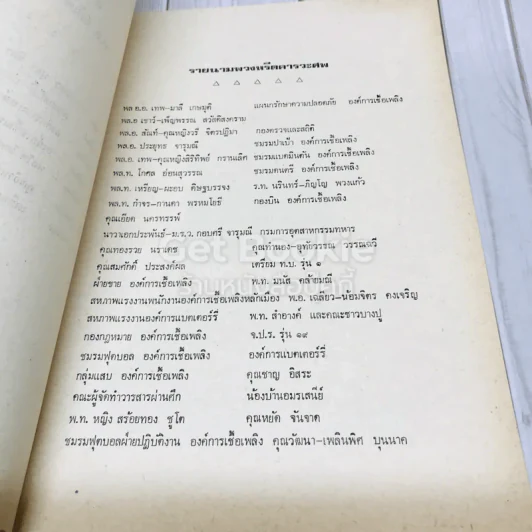 รายนามพวงหรีดคารวะศพ
△ △ △ △ △
พล อ.อ. เทพ-มาลี เกษมุติ แผนกรักษาความปลอดภัย องค์การเชื้อเพลิง
พล.อ เชาว์-เพ็ญพรรณ สวัสดิสงคราม
พล.อ. สัณห์-คุณหญิงวรี จิตรปฏิมา กองตรวจและสถิติ
พล.อ. ประยุทธ จารุมณี ชมรมปาเป้า องค์การเชื้อเพลิง
พล.อ. เทพ-คุณหญิงสิริทิพย์ กรานเลิศ ชมรมแบดมินตัน องค์การเชื้อเพลิง
พล.ท. โกศล ย่อมสุวรรณ ชมรมดนตรี องค์การเชื้อเพลิง
พล.ท. เหรียญ-มะยอบ ดิษฐบรรจง ร.ท. นรินทร์-ภิญโญ พวงแก้ว
พล.ท. กำจร-กานดา พรหมโยธี กองบิน องค์การเชื้อเพลิง
คุณเอียด นครทรรพ์
นาวาเอกประพันธ์-ม.ร.ว. กอบศรี จารุมณี กรมการอุตสาหกรรมทหาร
คุณทองรวย นราเดช คุณทำนอง-อุทัยวรรณ วรรณฉวี
คุณสมศักดิ์ ประสงค์ผล เตรียม ท.บ. รุ่น ๑
ฝ่ายขาย องค์การเชื้อเพลิง พ.ท. มนัส คล้ายมณี
สหภาพแรงงานพนักงานองค์การเชื้อเพลิงหลักเมือง พ.อ. เฉลียว-นอมจิตร คงเจริญ
สหภาพแรงงานองค์การแบตเตอร์รี่ พ.ท. สำอางค์ และคณะชาวบางปู
กองกฎหมาย องค์การเชื้อเพลิง จ.ป.ร. รุ่น ๑๙
ชมรมฟุตบอล องค์การเชื้อเพลิง องค์การแบตเตอร์รี่
กลุ่มแสบ องค์การเชื้อเพลิง คุณชาญ อิสระ
คณะผู้จัดทำวารสารผ่านศึก น้องบ้านอมรเสนีย์
พ.ท. หญิง สร้อยทอง ชูโต คุณหยัด จันจาด
ชมรมฟุตบอลฝ่ายปฏิบัติงาน องค์การเชื้อเพลิง คุณวัฒนา-เพลินพิศ บุนนาค
Get Bookie
ร้านหนังสือเก็ตบุ๊คกี้